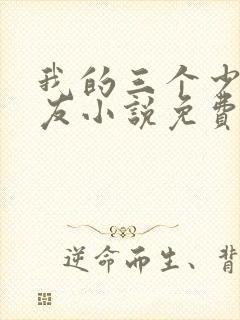 我的三个少
友小説免費
逆命而生、背